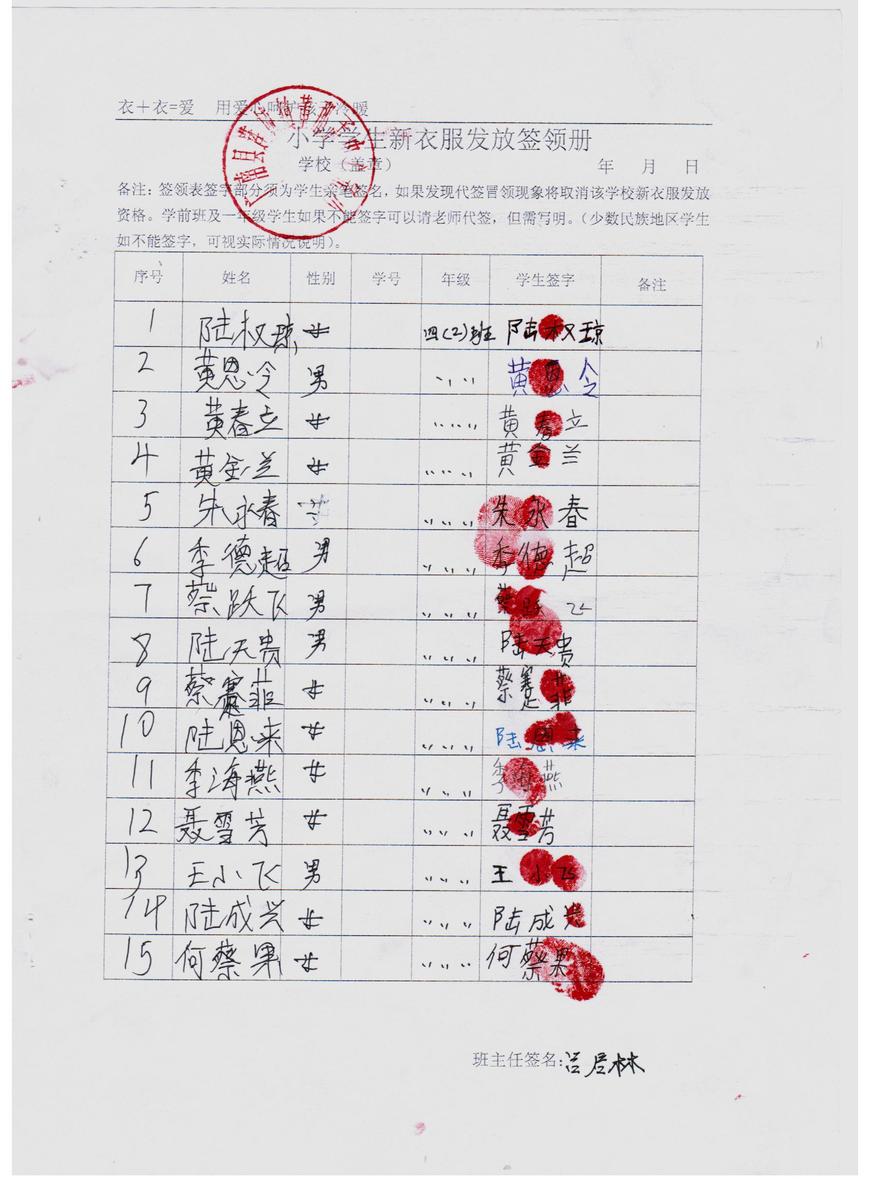 衣＋衣=爱 用爱心呵护孩子冷暖
小学学生新衣服发放签领册
学校（盖章） 年 月 日
备注：签领表签字部分须为学生亲笔签名，如果发现代签冒领现象将取消该学校新衣服发放
资格。学前班及一年级学生如果不能签字可以请老师代签，但需写明。（少数民族地区学生
如不能签字，可视实际情况说明）。
序号 姓名 性别 学号 年级 学生签字 备注
1 陆权琼 女 四(2)班 陆权琼
2 黄恩冷 男 〃 〃 黄恩令
3 黄春立 女 〃 〃 黄春立
4 黄金兰 女 〃 〃 黄金兰
5 朱永春 〃 〃 朱永春
6 季德超 男 〃 〃 季德超
7 蔡跃飞 男 〃 〃 蔡跃飞
8 陆天贵 男 〃 〃 陆天贵
9 蔡蹇菲 女 〃 〃 蔡蹇菲
10 陆恩来 女 〃 〃 陆恩来
11 季海燕 女 〃 〃 季海燕
12 聂雪芳 女 〃 〃 聂雪芳
13 王小飞 男 〃 〃 王小飞
14 陆成兴 女 〃 〃 陆成兴
15 何蔡果 女 〃 〃 何蔡果
班主任签名: